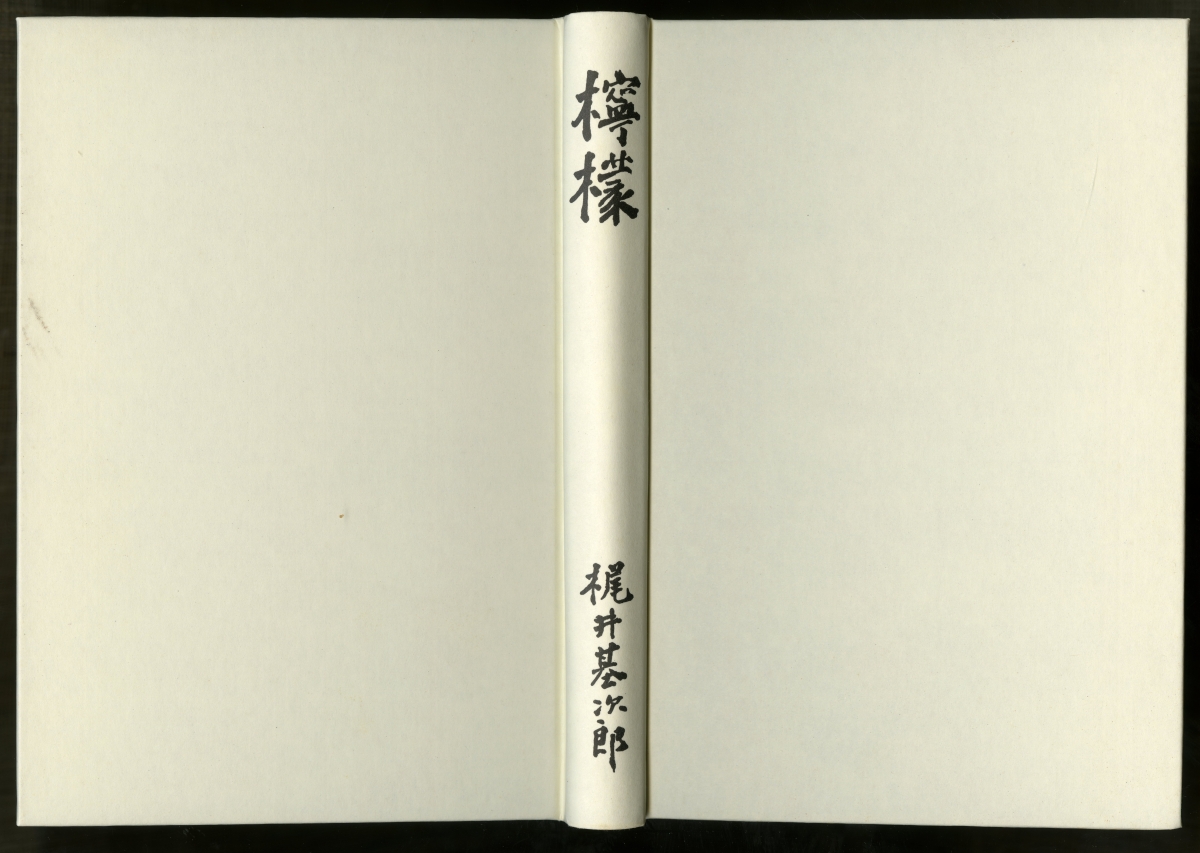 檸檬
梶井基次郎